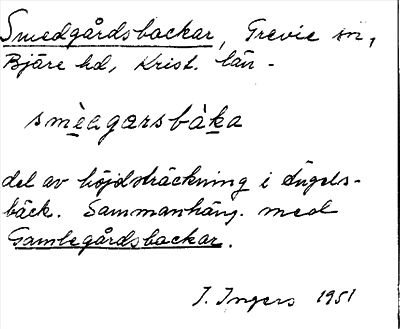 Smedgårdsbackar, Grevie sn,
Bjäre hd, Krist. län.
smèagarsbàka
del av höjdsträckning i Ängels-
bäck. Sammanhäng. med
Gamlegårdsbackar.
I. Ingers 1951